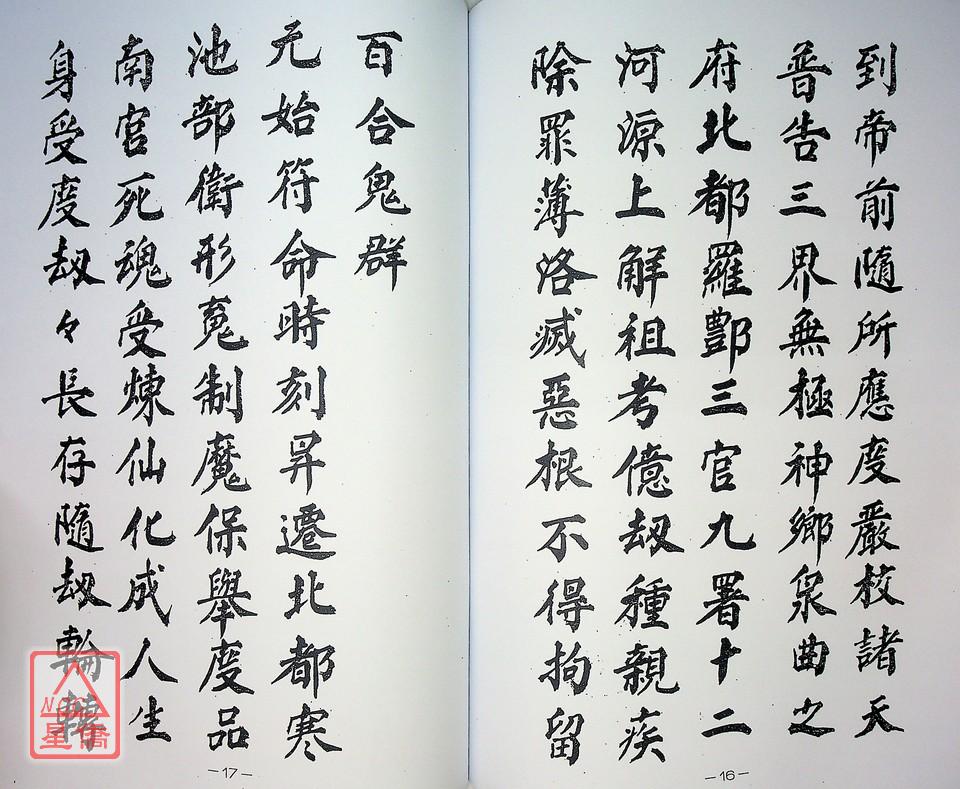 到帝前隨所應度嚴校諸天
普告三界無極神鄉泉曲之
府北都羅酆三官九署十二
河源上解祖考億刼種親疾
除罪薄洛滅惡根不得拘留
－16－
百合鬼群
元始符命時刻昇遷北都寒
池部衛形蒐制魔保舉度品
南宮死魂受煉仙化成人生
身受度刼々長存隨刼輪轉
－17－
星僑